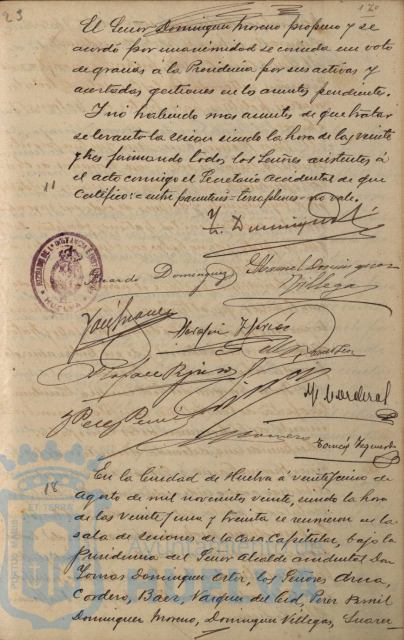 23
120
El Señor Dominguez Moreno propuso y se
acordó por unanimidad se conceda un voto
de gracias á la Presidencia por sus activas y
acertadas gestiones en los asuntos pendientes.
Y no habiendo mas asuntos de que tratar
se levantó la sesion siendo la hora de las veinte
y tres firmando todos los Señores asistentes á
el acto conmigo el Secretario accidental de que
Certifico: = entre parentesis = no vale.
11
T. Dominguez
Dominguez
Manuel Dominguez
Villegas
HUELVA
José Suarez
Perez
M. Corderal
18
En la Ciudad de Huelva á veinticinco de
Agosto de mil novecientos veinte, siendo la hora
de las veintiuna y treinta se reunieron en la
sala de sesiones de la Casa Capitular, bajo la
Presidencia del Señor Alcalde accidental Don
Tomas Dominguez Ortiz, los Señores
Cordero, Baez, Vazquez del Cid, Perez
Dominguez Moreno, Dominguez Villegas, Suarez